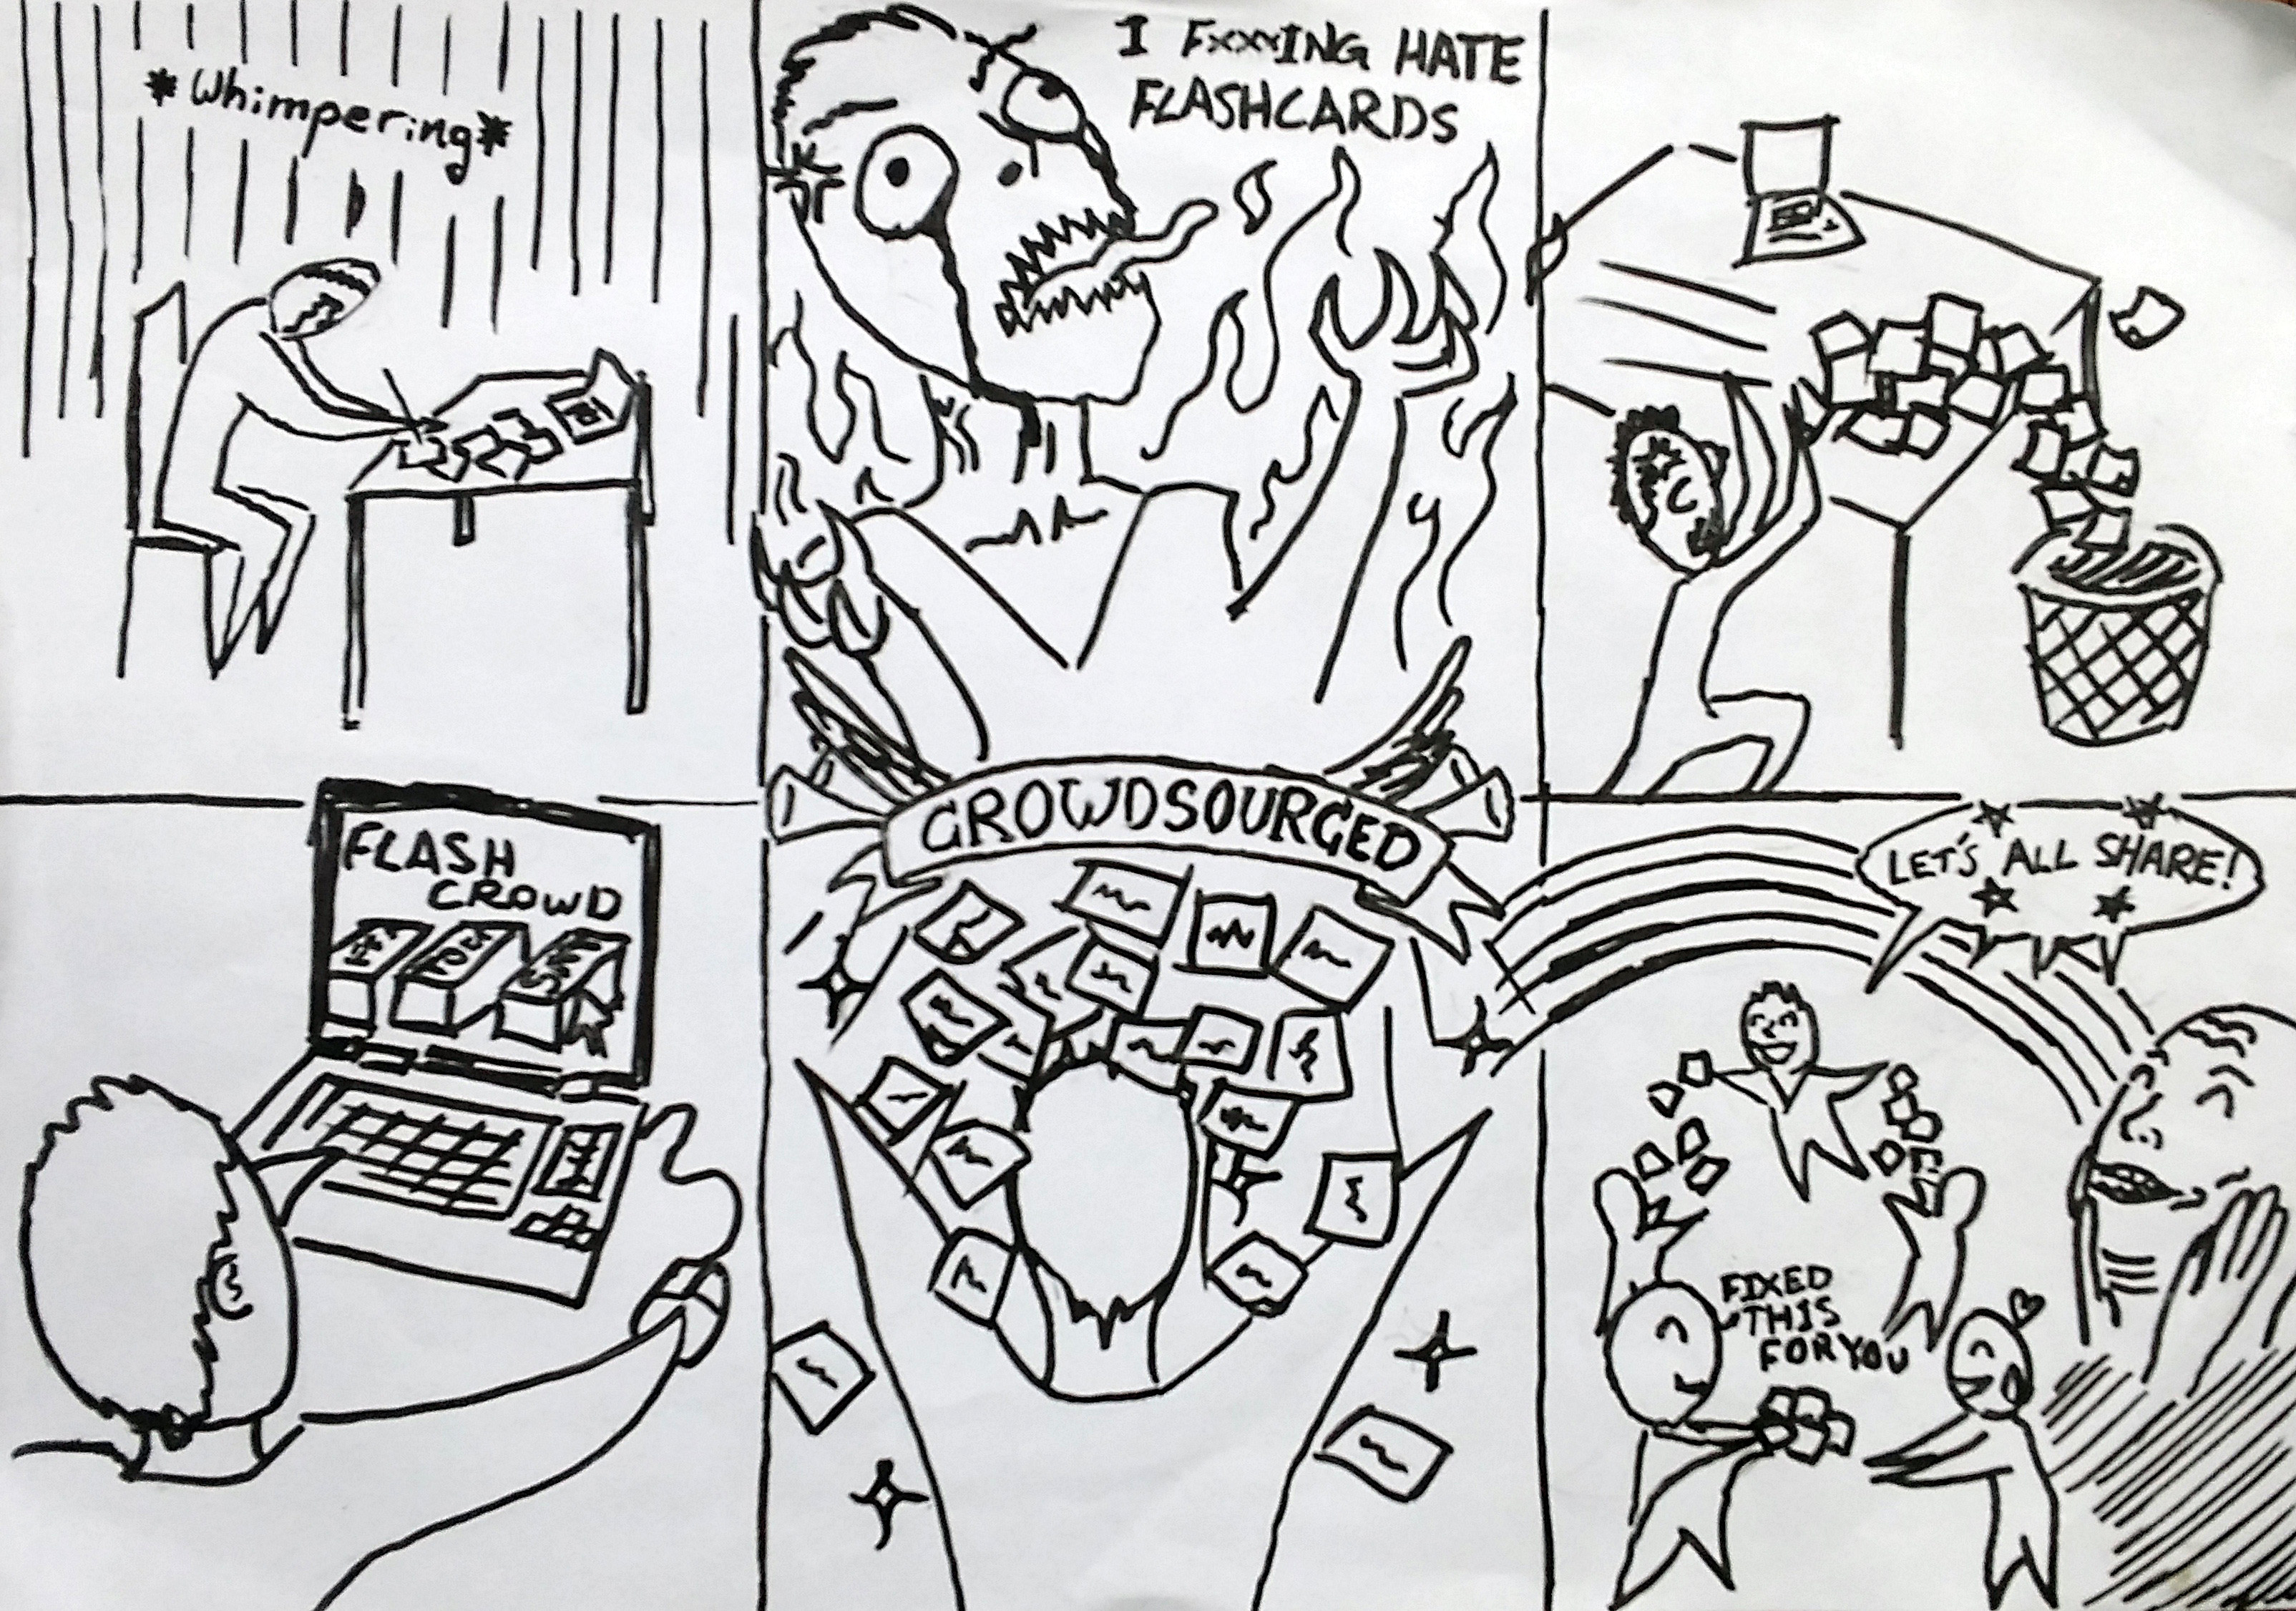 *Whimpering*
I FXXXING HATE
FLASHCARDS
FLASH
CROWD
CROWDSOURCED
LET'S ALL SHARE!
FIXED
THIS
FOR YOU